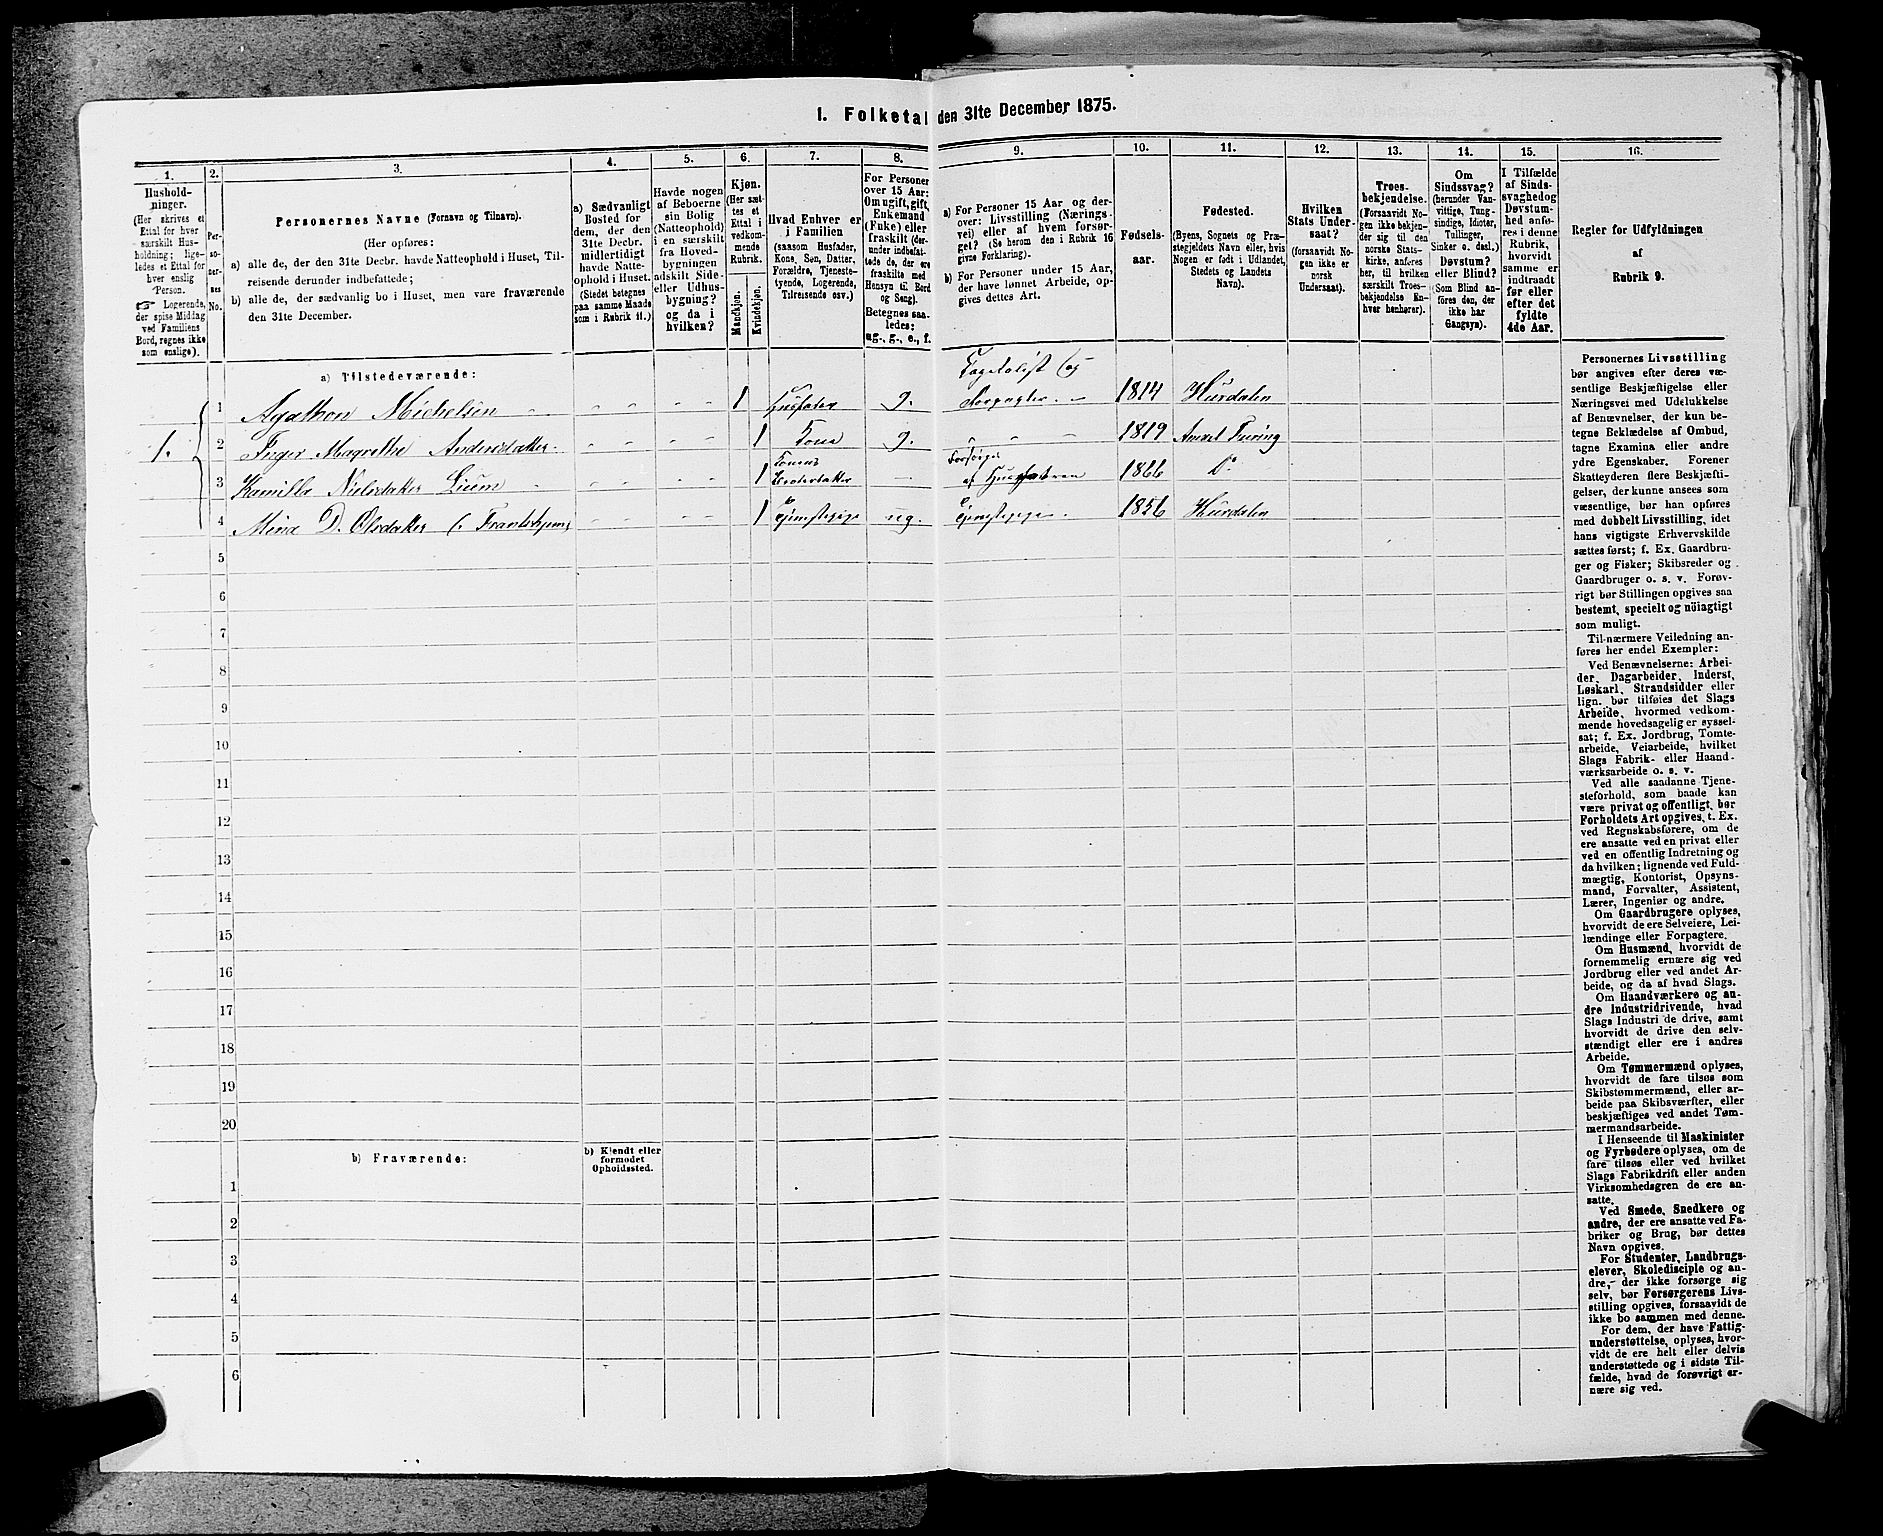 I. Folketal den 31te December 1875.
1.
Hushold-
ninger.
(Her skrives et
Ettal for hver
særskilt Hus-
holdning; lige-
ledes et Ettal for
hver enslig
Person.
☞ Logerende,
der spise Middag
ved Familiens
Bord, regnes ikke
som enslige).
2.
Per-
so-
ner-
nes
No.
3.
Personernes Navne (Fornavn og Tilnavn).
(Her opføres:
a) alle de, der den 31te Decbr. havde Natteophold i Huset, Til-
reisende derunder indbefattede;
b) alle de, der sædvanlig bo i Huset, men vare fraværende
den 31te December.
4.
a) Sædvanligt
Bosted for
dem, der den
31te Decbr.
midlertidigt
havde Natte-
ophold i Huset.
(Stedet betegnes
paa samme Maade
som i Rubrik 11.)
5.
Havde nogen
af Beboerne
sin Bolig
(Natteophold)
i en særskilt
fra Hoved-
bygningen
adskilt Side-
eller Udhus-
bygning?
og da i
hvilken?
6.
Kjøn.
(Her sæt-
tes et
Ettal i
vedkom-
mende
Rubrik.
Mandkjøn.
Kvindekjøn.
7.
Hvad Enhver er
i Familien
(saasom Husfader,
Kone, Søn, Datter,
Forældre, Tjeneste-
tyende, Logerende,
Tilreisende osv.)
8.
For Personer
over 15 Aar:
Om ugift, gift,
Enkemand
(Enke) eller
fraskilt (der-
under indbefat-
tede de, der ere
fraskilte med
Hensyn til Bord
og Seng).
Betegnes saa-
ledes:
ug., g., e., f.
9.
a) For Personer 15 Aar og der-
over: Livsstilling (Nærings-
vei) eller af hvem forsør-
get? (Se herom den i Rubrik 16
givne Forklaring).
b) For Personer under 15 Aar,
der have lønnet Arbeide, op-
gives dettes Art.
10.
Fødsels-
aar.
11.
Fødested.
(Byens, Sognets og Præ-
stegjeldets Navn eller, hvis
Nogen er født i Udlandet,
Stedets og Landets
Navn).
12.
Hvilken
Stats Under-
saat?
(forsaavidt No-
gen ikke er
norsk
Undersaat).
13.
Troes-
bekjendelse.
(Forsaavidt No-
gen ikke bekjen-
der sig til den
norske Stats-
kirke, anføres
her, til hvilken
særskilt Troes-
bekjendelse En-
hver henhører).
14.
Om
Sindssvag?
(herunder Van-
vittige, Tung-
sindige, Idioter,
Tullinger,
Sinker o. desl.)
Døvstum?
eller Blind?
(Som Blind an-
føres den, der
ikke har
Gangsyn).
15.
I Tilfælde
af Sinds-
svaghed og
Døvstum-
hed anfø-
res i denne
Rubrik,
hvorvidt
samme er
indtraadt
før eller
efter det
fyldte
4de Aar.
16.
Regler for Udfyldningen
af
Rubrik 9.
a) Tilstedeværende:
1. 1 Agathon Michelsen - - - - 1 Husfader g. Dagelejst og Forpagter - 1814 Hurdalen
2 Inger Magrethe Andersdatter - - - - 1 Kone g. - - - 1819 Amvel Furing
3 Kamilla Nielsdatter Lium - - - - - 1 Konens Broderdatter - Forsørges af Husfaderen 1866 D°
4 Mina D. Olsdatter - - - - 1 Tjenestepige ug. Tjenestepige - 1856 Hurdalen
5
6
7
8
9
10
11
12
13
14
15
16
17
18
19
20
b) Fraværende:
b) Kjendt eller
formodet
Opholdssted.
1
2
3
4
5
6
Personernes Livsstilling
bør angives efter deres væ-
sentlige Beskjæftigelse eller
Næringsvei med Udelukkelse
af Benævnelser, der kun be-
tegne Beklædelse af Ombud,
tagne Examina eller andre
ydre Egenskaber. Forener
Skatteyderen flere Beskjæfti-
gelser, der kunne ansees som
væsentlige, bør han opføres
med dobbelt Livsstilling, idet
hans vigtigste Erhvervskilde
sættes først; f. Ex. Gaardbru-
ger og Fisker; Skibsreder og
Gaardbruger o. s. v. Forøv-
rigt bør Stillingen opgives saa
bestemt, specielt og nöiagtigt
som muligt.
Til nærmere Veiledning an-
føres her endel Exempler:
Ved Benævnelserne: Arbei-
der, Dagarbeider, Inderst,
Løskarl, Strandsidder eller
lign. bør tilføies det Slags
Arbeide, hvormed vedkom-
mende hovedsagelig er syssel-
sat; f. Ex. Jordbrug, Tomte-
arbeide, Veiarbeide, hvilket
Slags Fabrik- eller Haand-
værksarbeide o. s. v.
Ved alle saadanne Tjene-
steforhold, som baade kan
være privat og offentligt, bør
Forholdets Art opgives, t. Ex.
ved Regnskabsførere, om de
ere ansatte ved en privat eller
ved en offentlig Indretning og
da hvilken; lignende ved Fuld-
mægtig, Kontorist, Opsyns-
mand, Forvalter, Assistent,
Lærer, Ingeniør og andre.
Om Gaardbrugere oplyses,
hvorvidt de ere Selveiere, Lei-
lændinge eller Forpagtere.
Om Husmænd, hvorvidt de
fornemmelig ernære sig ved
Jordbrug eller ved andet Ar-
beide, og da af hvad Slags.
Om Haandværkere og an-
dre Industridrivende, hvad
Slags Industri de drive, samt
hvorvidt de drive den selv-
stændigt eller ere i andres
Arbeide.
Om Tømmermænd oplyses,
hvorvidt de fare tilsøs som
Skibstømmermænd, eller ar-
beide paa Skibsværfter, eller
beskjæftiges ved andet Tøm-
mermandsarbeide.
I Henseende til Maskinister
og Fyrbødere oplyses, om de
fare tilsøs eller ved hvilket
Slags Fabrikdrift eller anden
Virksomhedsgren de ere an-
satte.
Ved Smede, Snedkere og
andre, der ere ansatte ved Fa-
briker og Brug, bør dettes
Navn opgives.
For Studenter, Landbrugs-
elever, Skoledisciple og an-
dre, der ikke forsørge sig
selv, bør Forsørgerens Livs-
stilling opgives, forsaavidt de
ikke bo sammen med denne.
For dem, der have Fattig-
understøttelse, oplyses, hvor-
vidt de ere helt eller delvis
understøttede og i sidste Til-
fælde, hvad de forøvrigt er-
nære sig ved.